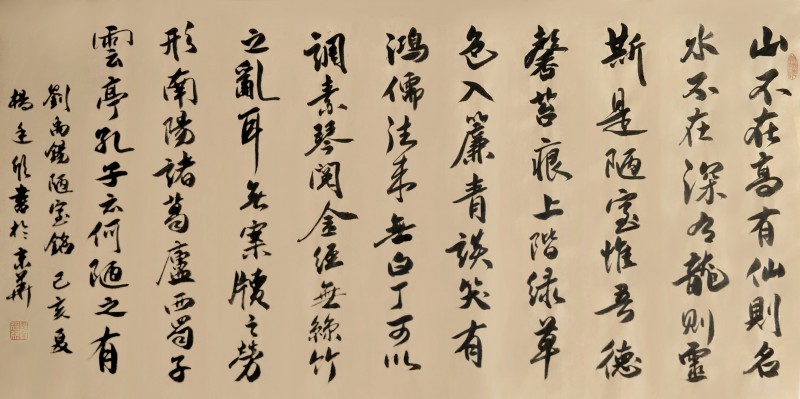 山不在高有仙則名
水不在深有龍則靈
斯是陋室惟吾德
馨苔痕上階綠草
色入簾青談笑有
鴻儒往來無白丁可以
調素琴閱金經無絲竹
之亂耳無案牘之勞
形南陽諸葛廬西蜀子
雲亭孔子云何陋之有
劉禹錫陋室銘 己亥夏
楊 書於京華